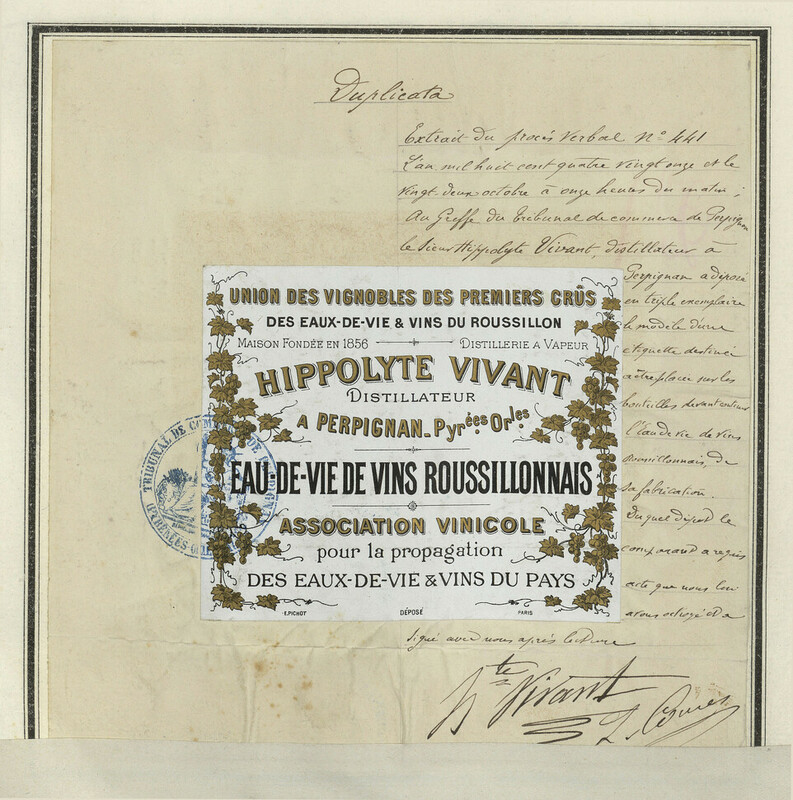 Duplicata
Extrait du procès verbal N° 441
L'an mil huit cent quatre vingt onze et le
vingt-deux octobre à onze heures du matin ;
Au Greffe du tribunal de commerce de Perpignan
le Sieur Hippolyte Vivant, distillateur à
Perpignan a déposé
en triple exemplaire
le modèle d'une
étiquette destinée
à être placer sur les
bouteilles devant contenir
l'eau de vie de vins
Roussillonnais, de
sa fabrication.
Duquel dépot le
comparant a requis
acte que nous lui
avons octroyé et a
signé avec nous après lecture
UNION DES VIGNOBLES DES PREMIERS CRÛS
DES EAUX-DE-VIE & VINS DU ROUSSILLON
MAISON FONDÉE EN 1856 DISTILLERIE A VAPEUR
HIPPOLYTE VIVANT
DISTILLATEUR
A PERPIGNAN_Pyrées Orles
EAU-DE-VIE DE VINS ROUSSILLONNAIS
ASSOCIATION VINICOLE
pour la propagation
DES EAUX-DE-VIE & VINS DU PAYS
E.PICHOT DÉPOSÉ PARIS
TRIBUNAL DE COMMERCE DE
(PYRÉNÉES
hte Vivant